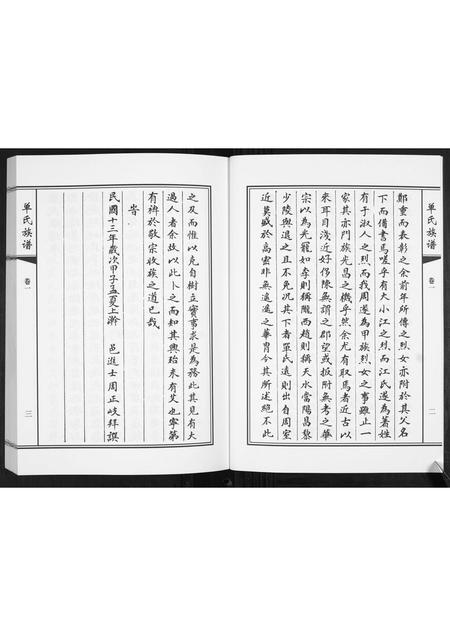 單氏族谱
卷一
二
鄭重而表彰之余前年所傳之烈女亦附於其父名
下而備書焉嗟乎有大小江之烈而江氏遂為著姓
有于淑人之烈而我周遂為甲族烈女之事雖止一
家其亦門族光昌之機乎然余尤有取焉者近古以
來耳目淺近好侈陳無謂之郡望或扳附無考之華
宗以為光寵如李則稱隴西趙則稱天水當陽昌黎
少陵與退之且不免况其下者單氏遠則出自周室
近莫盛於高密非無遙遙之華胄今其所述絕不此
之及而惟以克自樹立實事求是為務此其見有大
過人者余故以此卜之而知其興殆未有艾也寧第
有裨於敬宗收族之道已哉
旹
民國十三年歲次甲子孟夏上澣 邑進士周正岐拜譔
單氏族谱
卷一
三